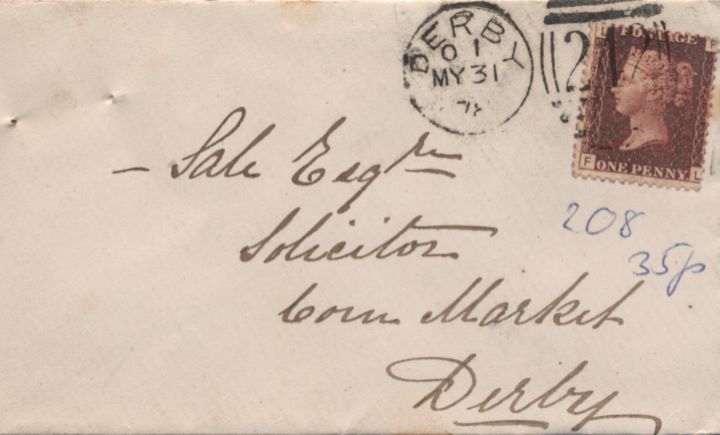 DERBY
O 1
MY 31
78
217
L F
POSTAGE
F L
ONE PENNY
– Sale Esqre
Solicitor
Corn Market
Derby
208
35p